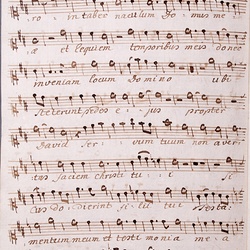 ro in tabernaculum Domus me
æ et loquiem temporibus meis donec
inveniam locum Domino ubi
steterunt pedes e jus propter
David ser vum tuum non aver
tas faciem christi tu i si
cus dodierint fi lii tui testa
mentum meum et testi monia me a